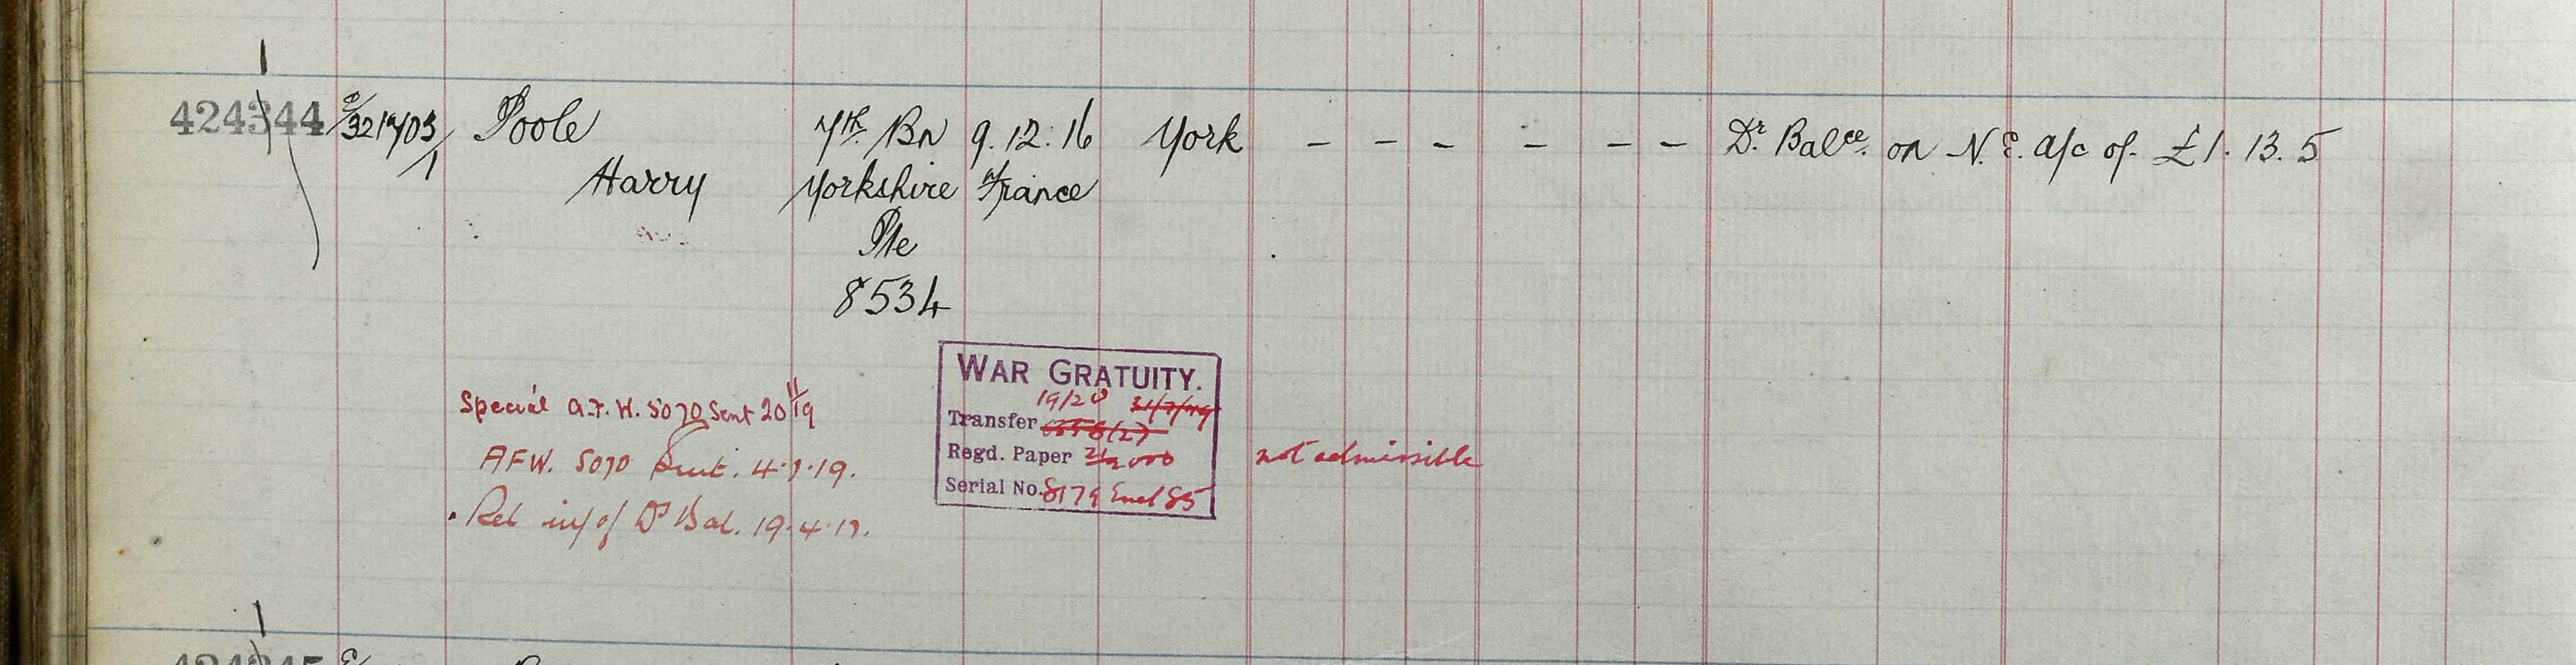 424344 E/321703/1 Poole 7th Bn 9.12.16 York - - - - - - Dr Balce. on N.E. a/c of £1.13.5
Harry Yorkshire France
Pte
8534
WAR GRATUITY.
Special A.F.W. 5070 Sent 20/11/19 19/20 31/7/19
Transfer
AFW. 5070 Sent. 4.7.19. Regd. Paper not admissible
Serial No. 8179 Encl 85
Rel inf of Dr Bal. 19.4.17.